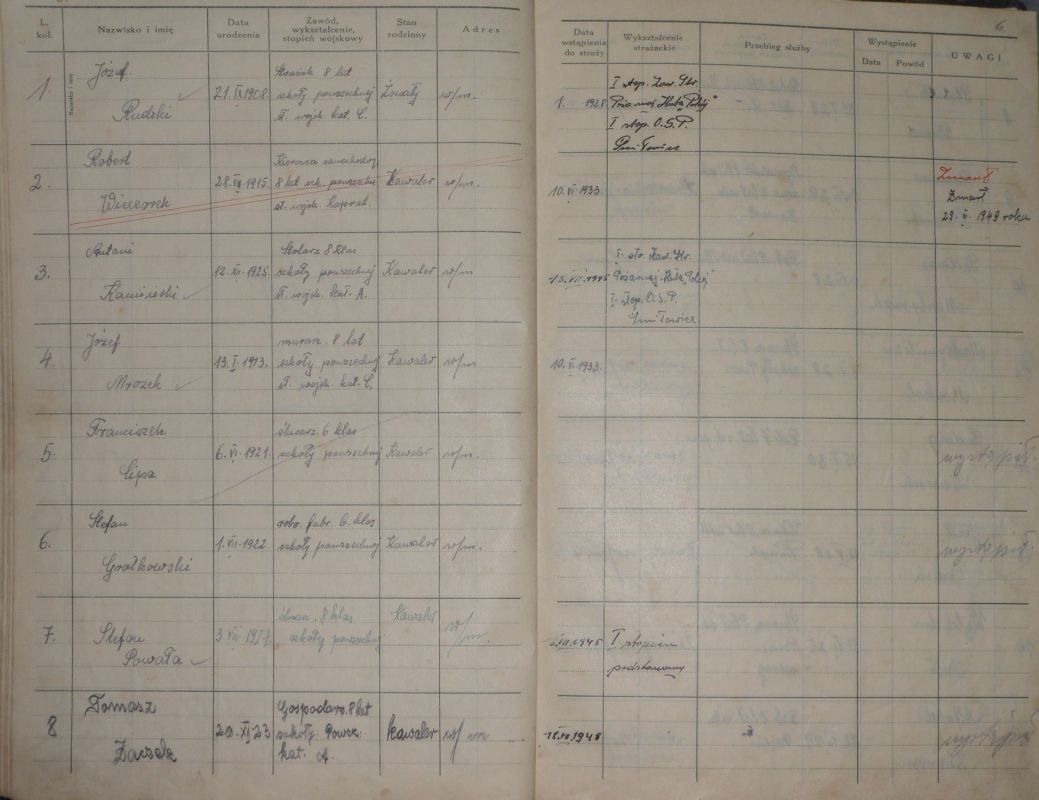 6
L. kol.
Nazwisko i imię
Data urodzenia
Zawód, wykształcenie, stopień wojskowy
Stan rodzinny
Adres
Data wstąpienia do straży
Wykształcenie strażackie
Przebieg służby
Wystąpienie
Data
Powód
UWAGI
Nazwisko i imię
1.
Józef
Rudski
21.IX.1908.
Strażak 8 lat
szkoły powszechnej
st. wojsk. kat. C.
żonaty
w/m.
1. 1928.
I stop.
I stop. O.S.P.
2.
Robert
Wieczorek
28.VII.1915.
Kierowca samochodowy
8 lat szk. powszechnej
st. wojsk. kapral.
Kawaler
w/m.
10.VI.1933.
Zmarł
Zmarł
29. 1949 roku
3.
Antoni
Kamiński
12.XII.1925.
Stolarz 8 klas
szkoły powszechnej
st. wojsk. kat. A.
Kawaler
w/m
15.VII.1945
I stop. O.S.P.
Śmiłowice
4.
Józef
Mrozek
13.I.1913.
murarz. 8 lat
szkoły powszechnej
st. wojsk. kat. C.
Kawaler
w/m
10.VI.1933.
5.
Franciszek
Lipa
6.VI.1921.
ślusarz. 6 klas
szkoły powszechnej
Kawaler
w/m.
wystąpił.
6.
Stefan
Grotkowski
1.VII.1922.
robo. fabr. 6. klas
szkoły powszechnej
Kawaler
w/m.
wystąpił
7.
Stefan
Powała
3.VIII.1927.
ślusarz. 8 klas
szkoły powszechnej
Kawaler
w/m.
1945
I stopień
podstawowy
8
Tomasz
Żaczek
20.XI.23
Gospodarz. 8 lat
szkoły Powsz.
kat. A.
kawaler
w/m
18.VII.1948
wystąpił